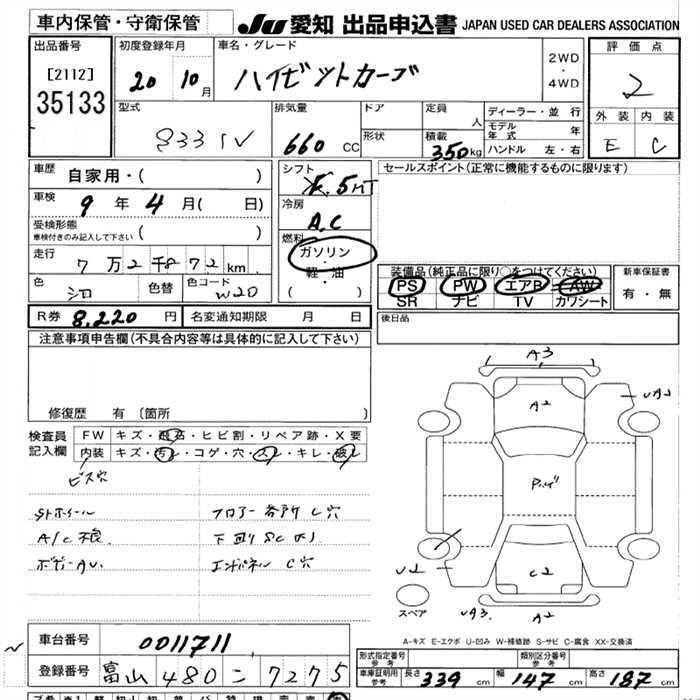 車内保管・守衛保管
JU 愛知 出品申込書 JAPAN USED CAR DEALERS ASSOCIATION
出品番号
[2112]
35133
初度登録年月
20 10月
車名・グレード
ハイゼットカーゴ
2WD
・
4WD
評価点
2
型式
S331V
排気量
660 CC
ドア
形状
定員
人
積載
350kg
ディーラー・並行
モデル年式 年
ハンドル 左・右
外装 内装
E C
車歴 自家用・( )
車検 9年 4月( 日)
受検形態
車検付きのみ記入して下さい ( )
走行 7万2千872km
色 シロ
色替
色コード W20
シフト
5MT
冷房
A.C
燃料
ガソリン
・
軽・油
( )
セールスポイント(正常に機能するものに限ります)
装備品(純正品に限り○をつけてください)
PS PW エアB AW
SR ナビ TV カワシート
新車保証書
有・無
R券 8,220円
名変通知期限 月 日
後日品
注意事項申告欄(不具合内容等は具体的に記入して下さい)
修復歴 有 〔箇所 〕
検査員
記入欄
FW キズ・飛石・ヒビ割・リペア跡・X要
内装 キズ・汚レ・コゲ・穴・スレ・キレ・破レ
ビス穴
A/C不良
フロアー各所 C穴
下廻り SC大
エンドパネル C穴
A3
A2
UA2
C2
U2
UA3
A2
スペア
A-キズ E-エクボ U-凹み W-補修跡 S-サビ C-腐食 XX-交換済
車台番号 0011711
登録番号 富山 480 ニ 7275
形式指定番号
参考
類別区分番号
参考
車庫証明用
参考
長さ 339 cm 幅 147 cm 高さ 187 cm